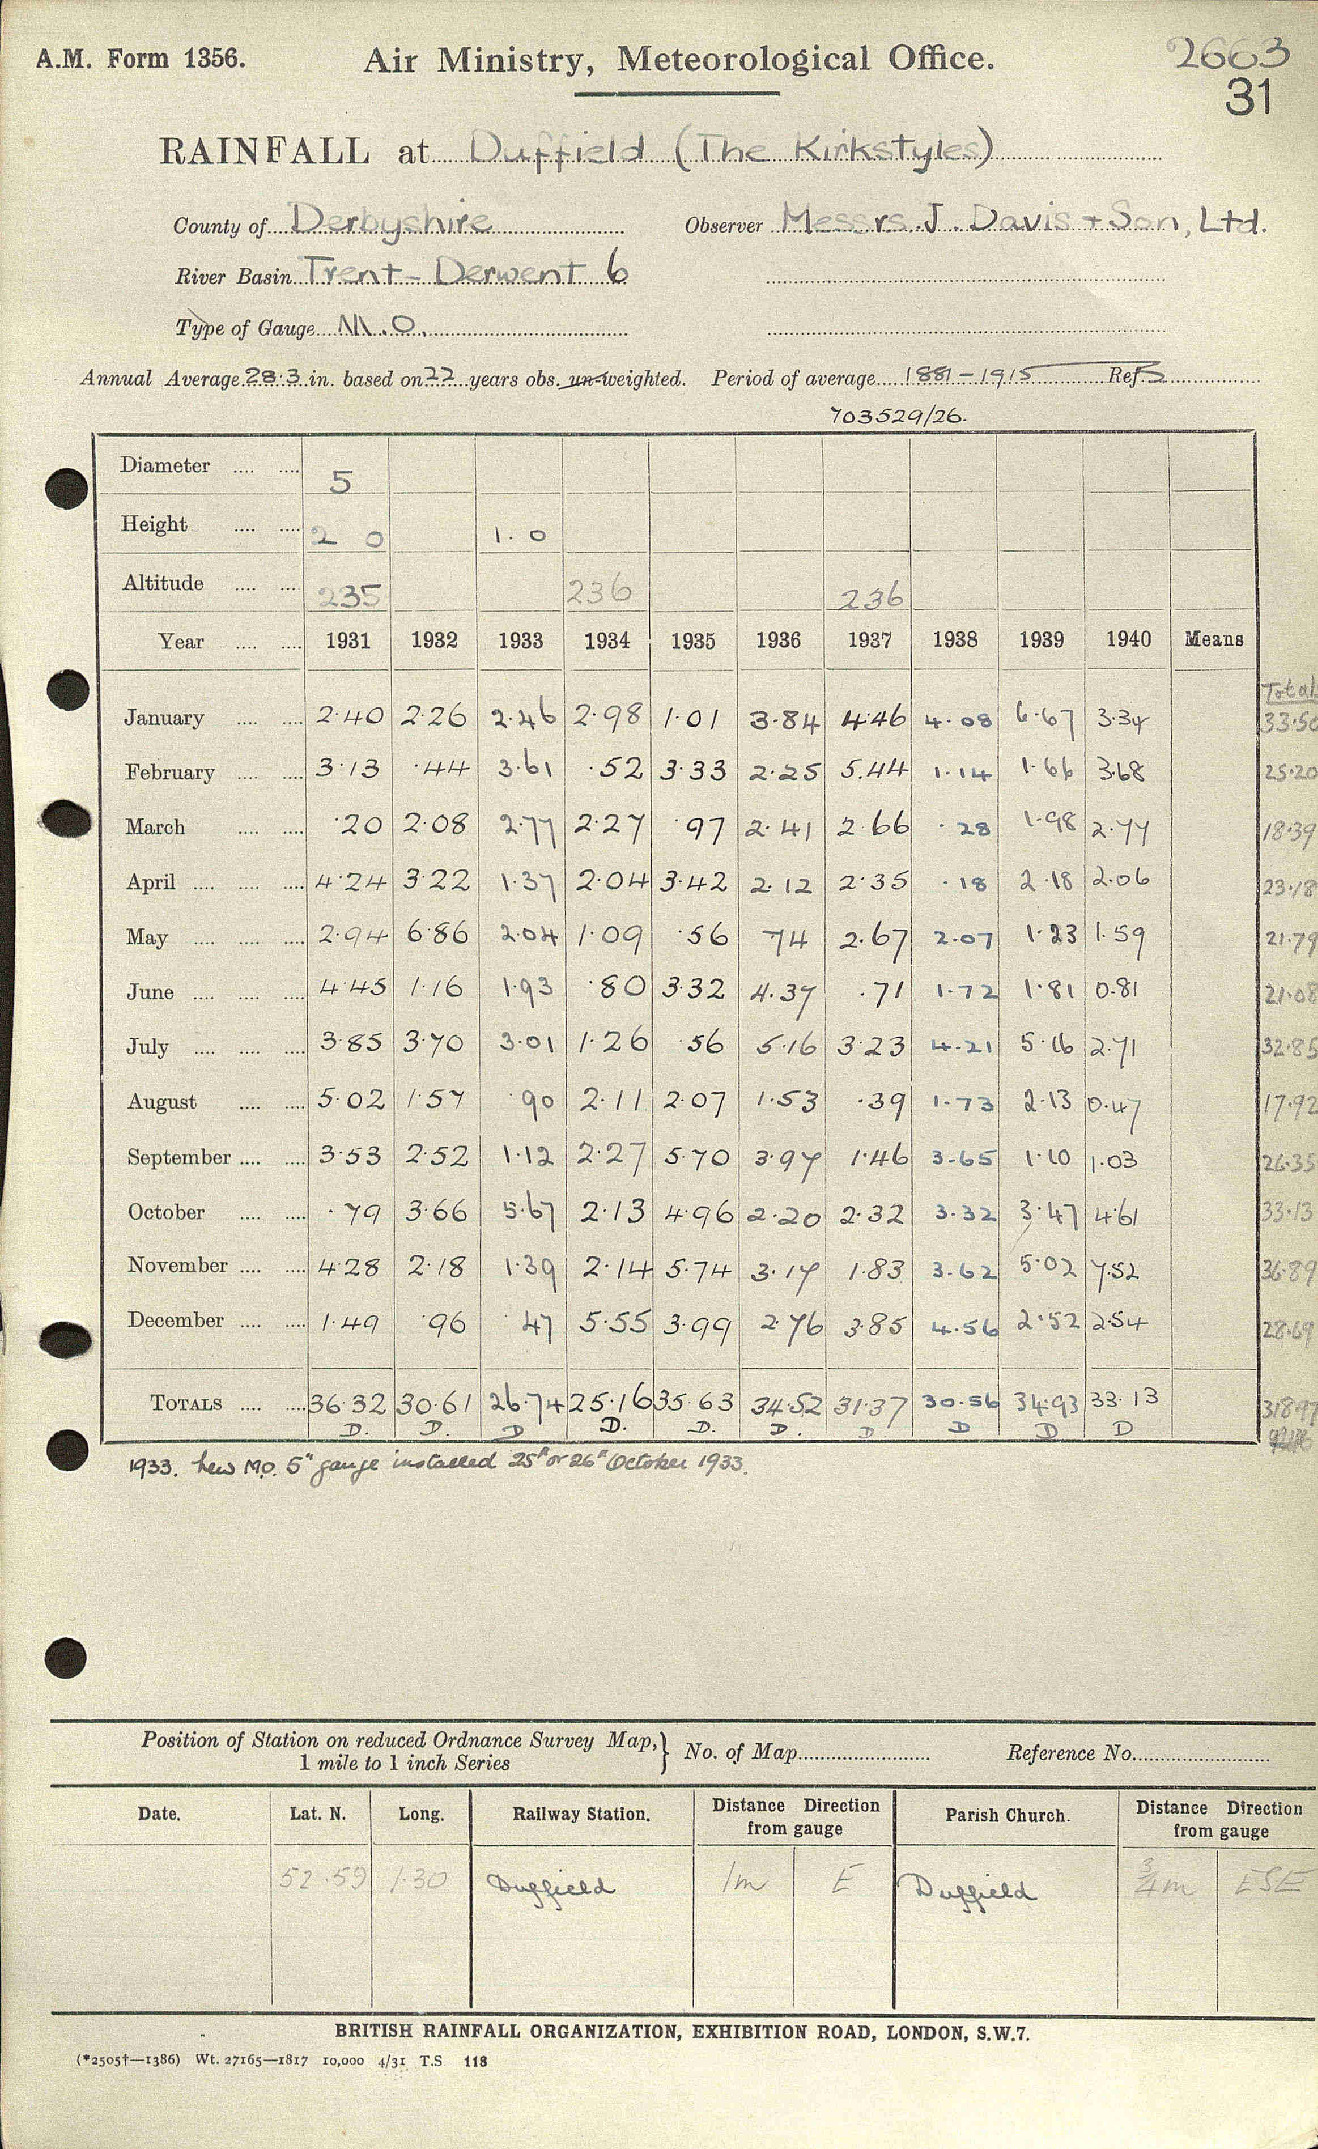 A.M. Form 1356. Air Ministry, Meteorological Office. 2663
31
RAINFALL at Duffield (The Kirkstyles)
County of Derbyshire Observer Messrs. J. Davis + Son, Ltd.
River Basin Trent - Derwent 6
Type of Gauge M.O.
Annual Average 28.3 in. based on 22 years obs. un-weighted. Period of average 1881-1915 Ref. B
703529/26.
Diameter .... .... 5
Height .... .... 2 0 1.0
Altitude .... .... 235 236 236
Year .... .... 1931 1932 1933 1934 1935 1936 1937 1938 1939 1940 Means
Total
January .... .... 2.40 2.26 2.46 2.98 1.01 3.84 4.46 4.08 6.67 3.34 33.50
February .... .... 3.13 .44 3.61 .52 3.33 2.25 5.44 1.14 1.66 3.68 25.20
March .... .... .20 2.08 2.77 2.27 .97 2.41 2.66 .28 1.98 2.77 18.39
April .... .... .... 4.24 3.22 1.37 2.04 3.42 2.12 2.35 .18 2.18 2.06 23.18
May .... .... .... 2.94 6.86 2.04 1.09 .56 .74 2.67 2.07 1.23 1.59 21.79
June .... .... .... 4.45 1.16 1.93 .80 3.32 4.37 .71 1.72 1.81 0.81 21.08
July .... .... .... 3.85 3.70 3.01 1.26 .56 5.16 3.23 4.21 5.16 2.71 32.85
August .... .... 5.02 1.57 .90 2.11 2.07 1.53 .39 1.73 2.13 0.47 17.92
September .... .... 3.53 2.52 1.12 2.27 5.70 3.97 1.46 3.65 1.10 1.03 26.35
October .... .... .79 3.66 5.67 2.13 4.96 2.20 2.32 3.32 3.47 4.61 33.13
November .... .... 4.28 2.18 1.39 2.14 5.74 3.17 1.83 3.62 5.02 7.52 36.89
December .... .... 1.49 .96 .47 5.55 3.99 2.76 3.85 4.56 2.52 2.54 28.69
TOTALS .... .... 36.32 30.61 26.74 25.16 35.63 34.52 31.37 30.56 34.93 33.13 318.97
D. D. D D. D. D. D D D D
1933. New M.O. 5" gauge installed 25th or 26th October 1933.
Position of Station on reduced Ordnance Survey Map, } No. of Map Reference No.
1 mile to 1 inch Series
Date. Lat. N. Long. Railway Station. Distance Direction from gauge Parish Church. Distance Direction from gauge
52.59 1.30 Duffield 1m E Duffield 3/4m ESE
BRITISH RAINFALL ORGANIZATION, EXHIBITION ROAD, LONDON, S.W.7.
(*2505†—1386) Wt. 27165—1817 10,000 4/31 T.S 118